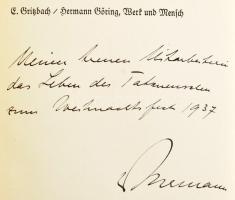 E. Gritzbach / Hermann Göring, Werk und Mensch
Meiner treuen Mitarbeiterin
das Leben des Tatmenschen
zum Weihnachtsfest 1937